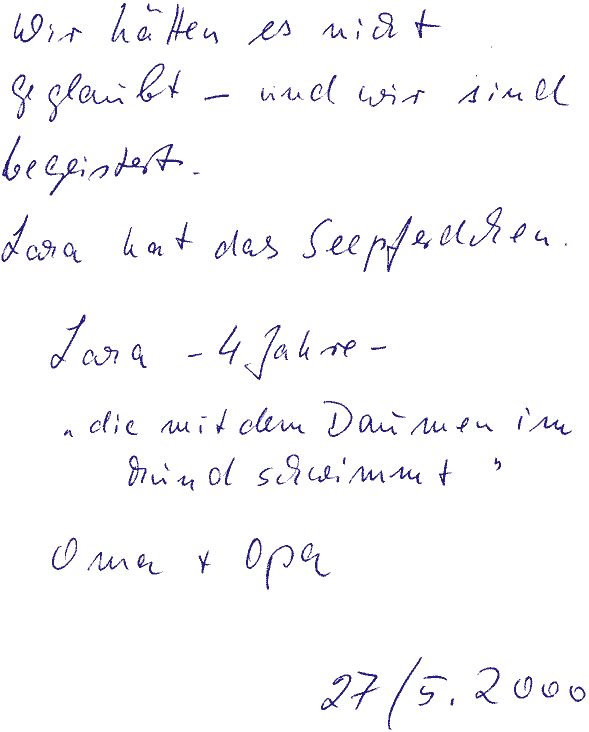 Wir hätten es nicht
geglaubt – und wir sind
begeistert.
Lara hat das Seepferdchen.
Lara – 4 Jahre –
„die mit dem Daumen im
Mund schwimmt"
Oma + Opa
27/5.2000